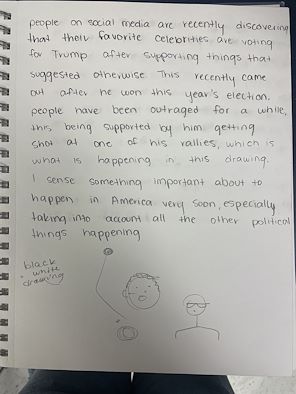 people on social media are recently discovering
that their favorite celebrities are voting
for Trump after supporting things that
suggested otherwise This recently came
out after he won this year's election.
people have been outraged for a while,
this being supported by him getting
shot at one of his rallies, which is
what is happening in this drawing.
I sense something important about to
happen in America very soon, especially
taking into account all the other political
things happening
black
+ white
drawing